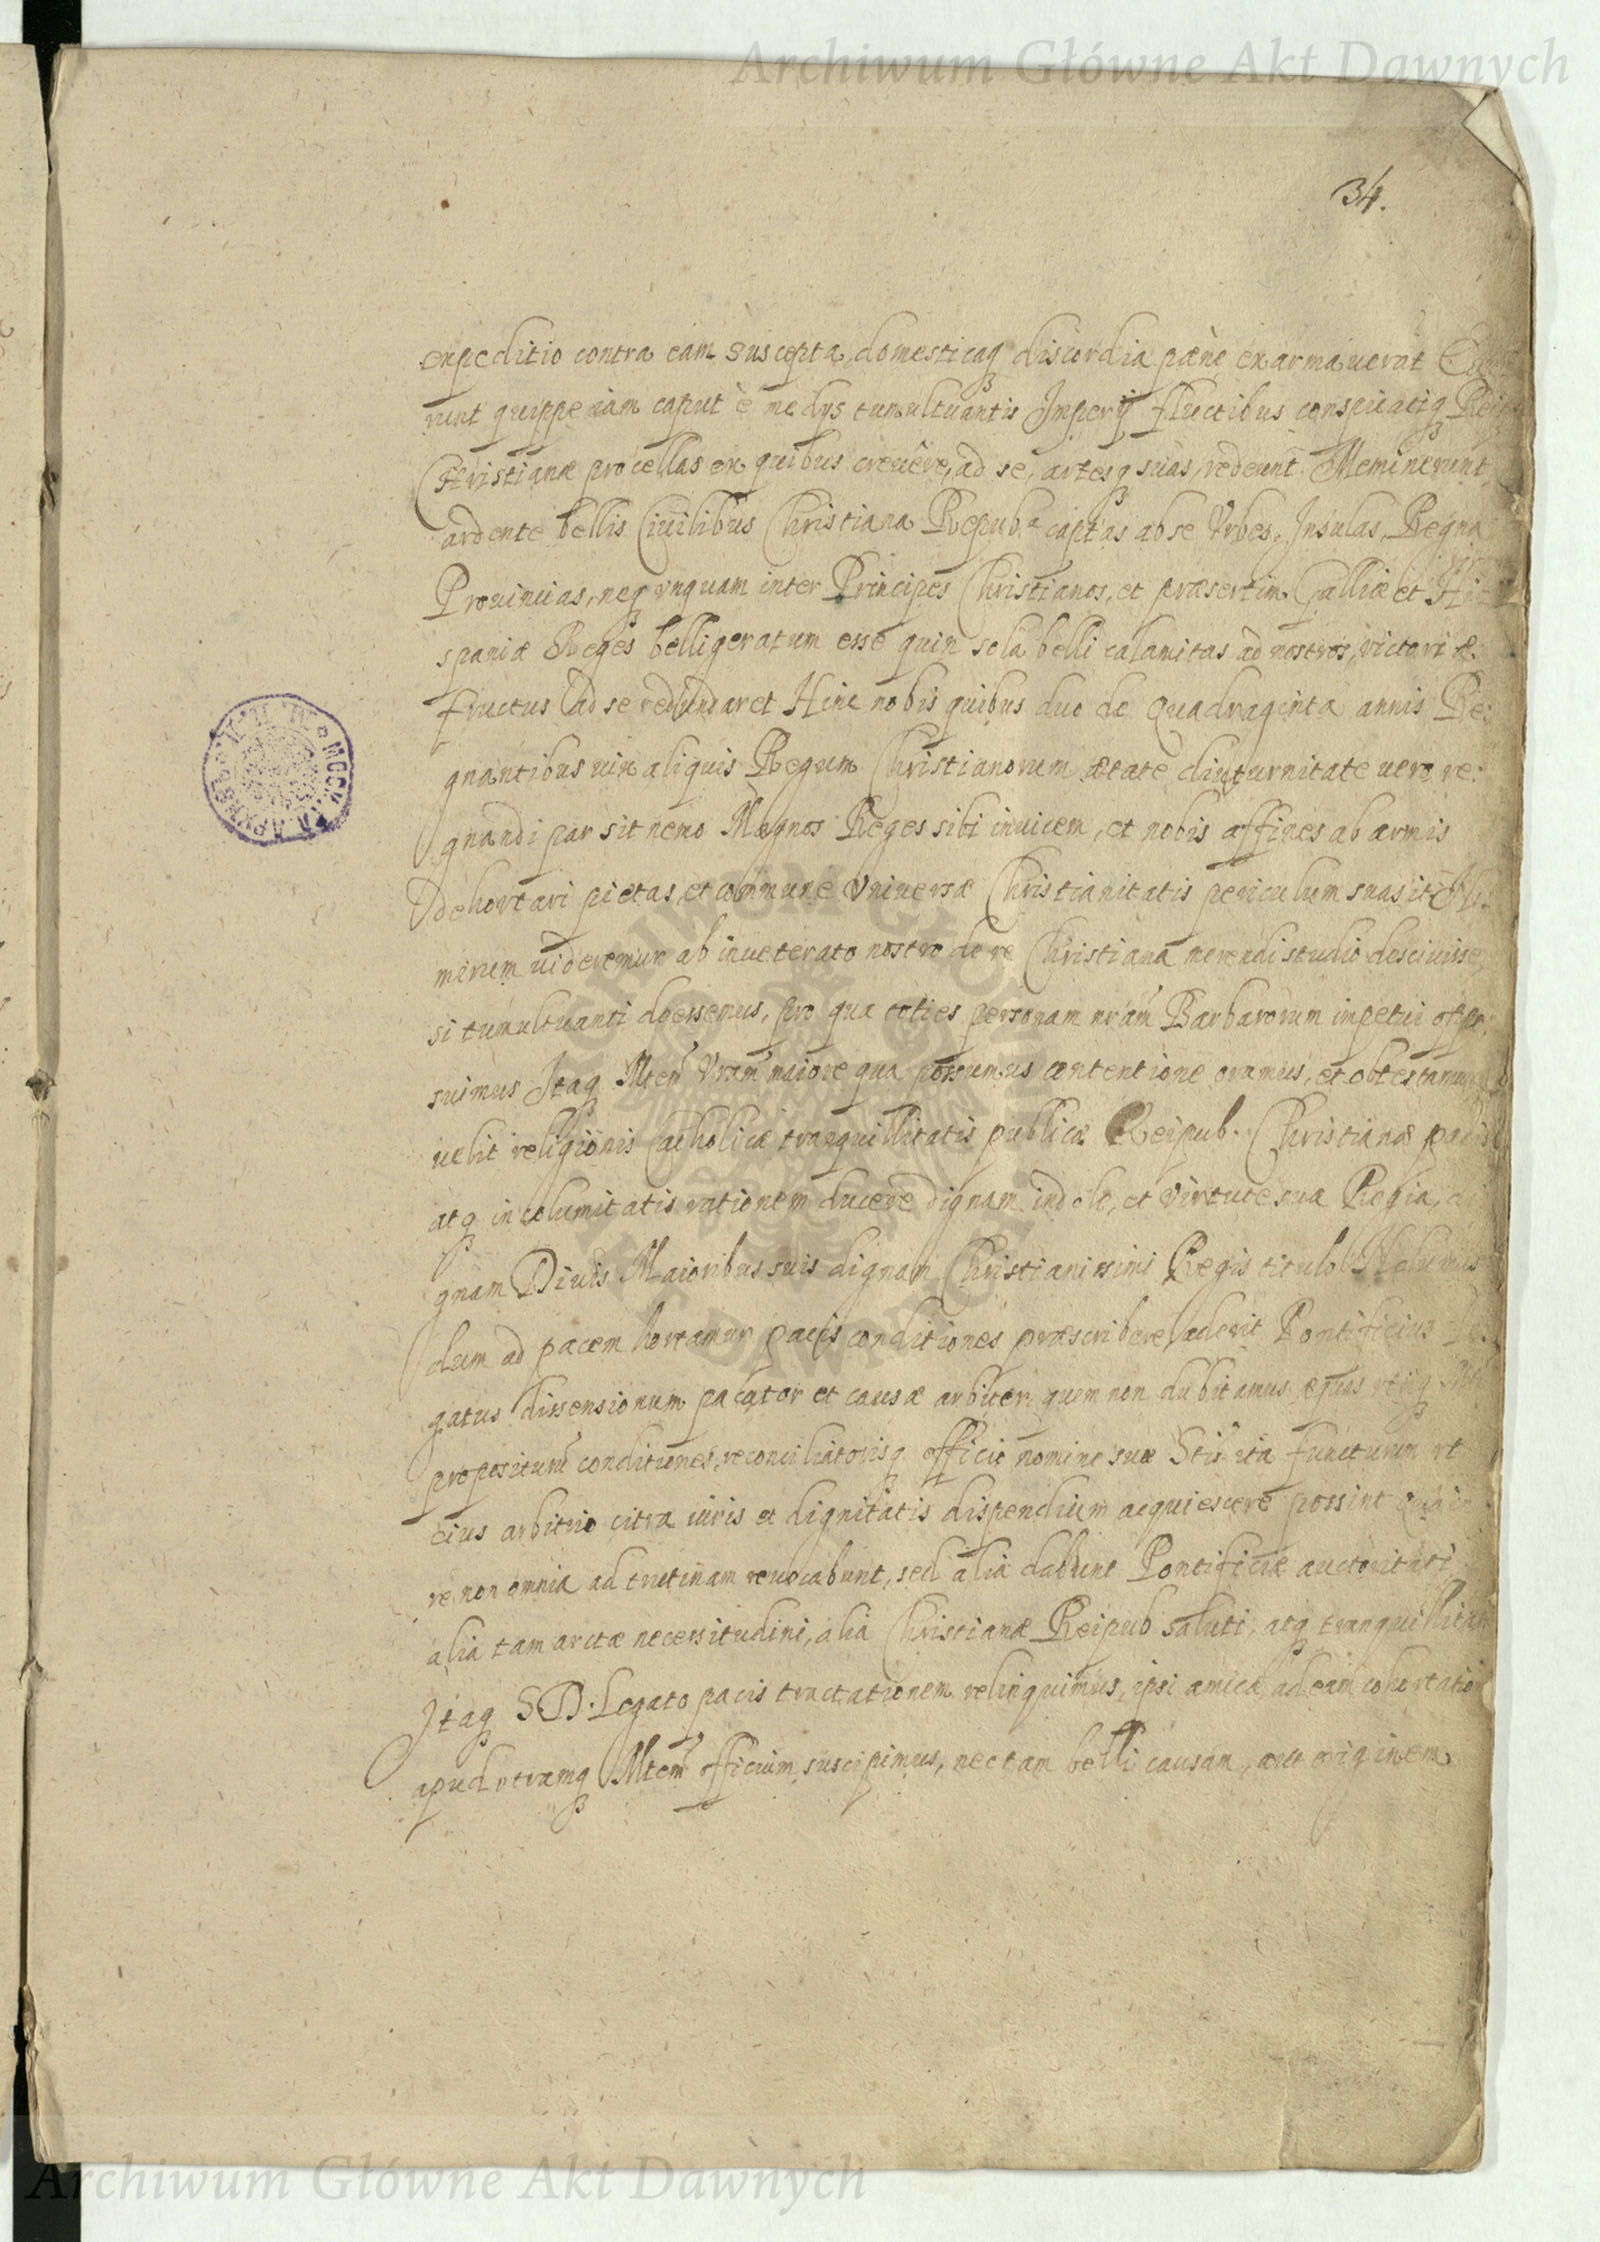 Archiwum Główne Akt Dawnych
34.
expeditio contra eam suscepta, domesticaq discordia pæne exarmaverat
runt quippe iam caput è medys tumultuantis Impery fluctibus conspicatiq
Christianæ procellas ex quibus crevêre, ad se, artesq suas, redeunt Meminerunt
ardente bellis Civilibus Christiana Repub^a captas ab se Vrbes, Insulas, Regna
Provincias, neq vnquam inter Principes Christianos, et præsertim Galliæ et Hi
spaniæ Reges belligeratum esse quin sola belli calamitas ad nostros, victoriæ
fructus ad se redundaret Hinc nobis quibus duo de quadraginta annis Re:
gnantibus vix aliquis Regum Christianorum ætate diuturnitate vero re:
gnandi par sit nemo Magnos Reges sibi invicem, et nobis affines ab armis
dehortari pietas, et commune Vniversæ Christianitatis periculum suasit Ni:
mirum videremur ab inveterato nostro de re Christiana merendi studio descivisse,
si tumultuanti deessemus, pro qua toties personam nram Barbarorum impetui oppo:
suimus Itaq Mtem Vram maiore qua possumus contentione oramus, et obtestamur
velit religionis Catholicæ tranquillitatis publicæ Reipub. Christianæ pacis
atq incolumitatis rationem ducere dignam indole, et virtute sua Regia, di
gnam Divis Maioribus suis dignam Christianissimi Regis titulo Nolumus
dum ad pacem hortamur pacis conditiones præscribere aderit Pontificius Le
gatus dissensionum pacator et causæ arbiter quem non dubitamus æquas vtriq Mti
propositurum conditiones, reconciliatorisq officio nomine suæ Stis ita functurum vt
eius arbitrio citra iuris et dignitatis dispendium acquiescere possint
re non omnia ad trutinam revocabunt, sed alia dabunt Pontificiæ auctoritati
alia tam arctæ necessitudini, alia Christianæ Reipub saluti, atq tranquillitati
Itaq S D. Legato pacis tractationem relinquimus, ipsi amicæ ad eam cohortation
apud vtramq Mtem officium suscipimus, nec tam belli causam, aut originem
Archiwum Główne Akt Dawnych